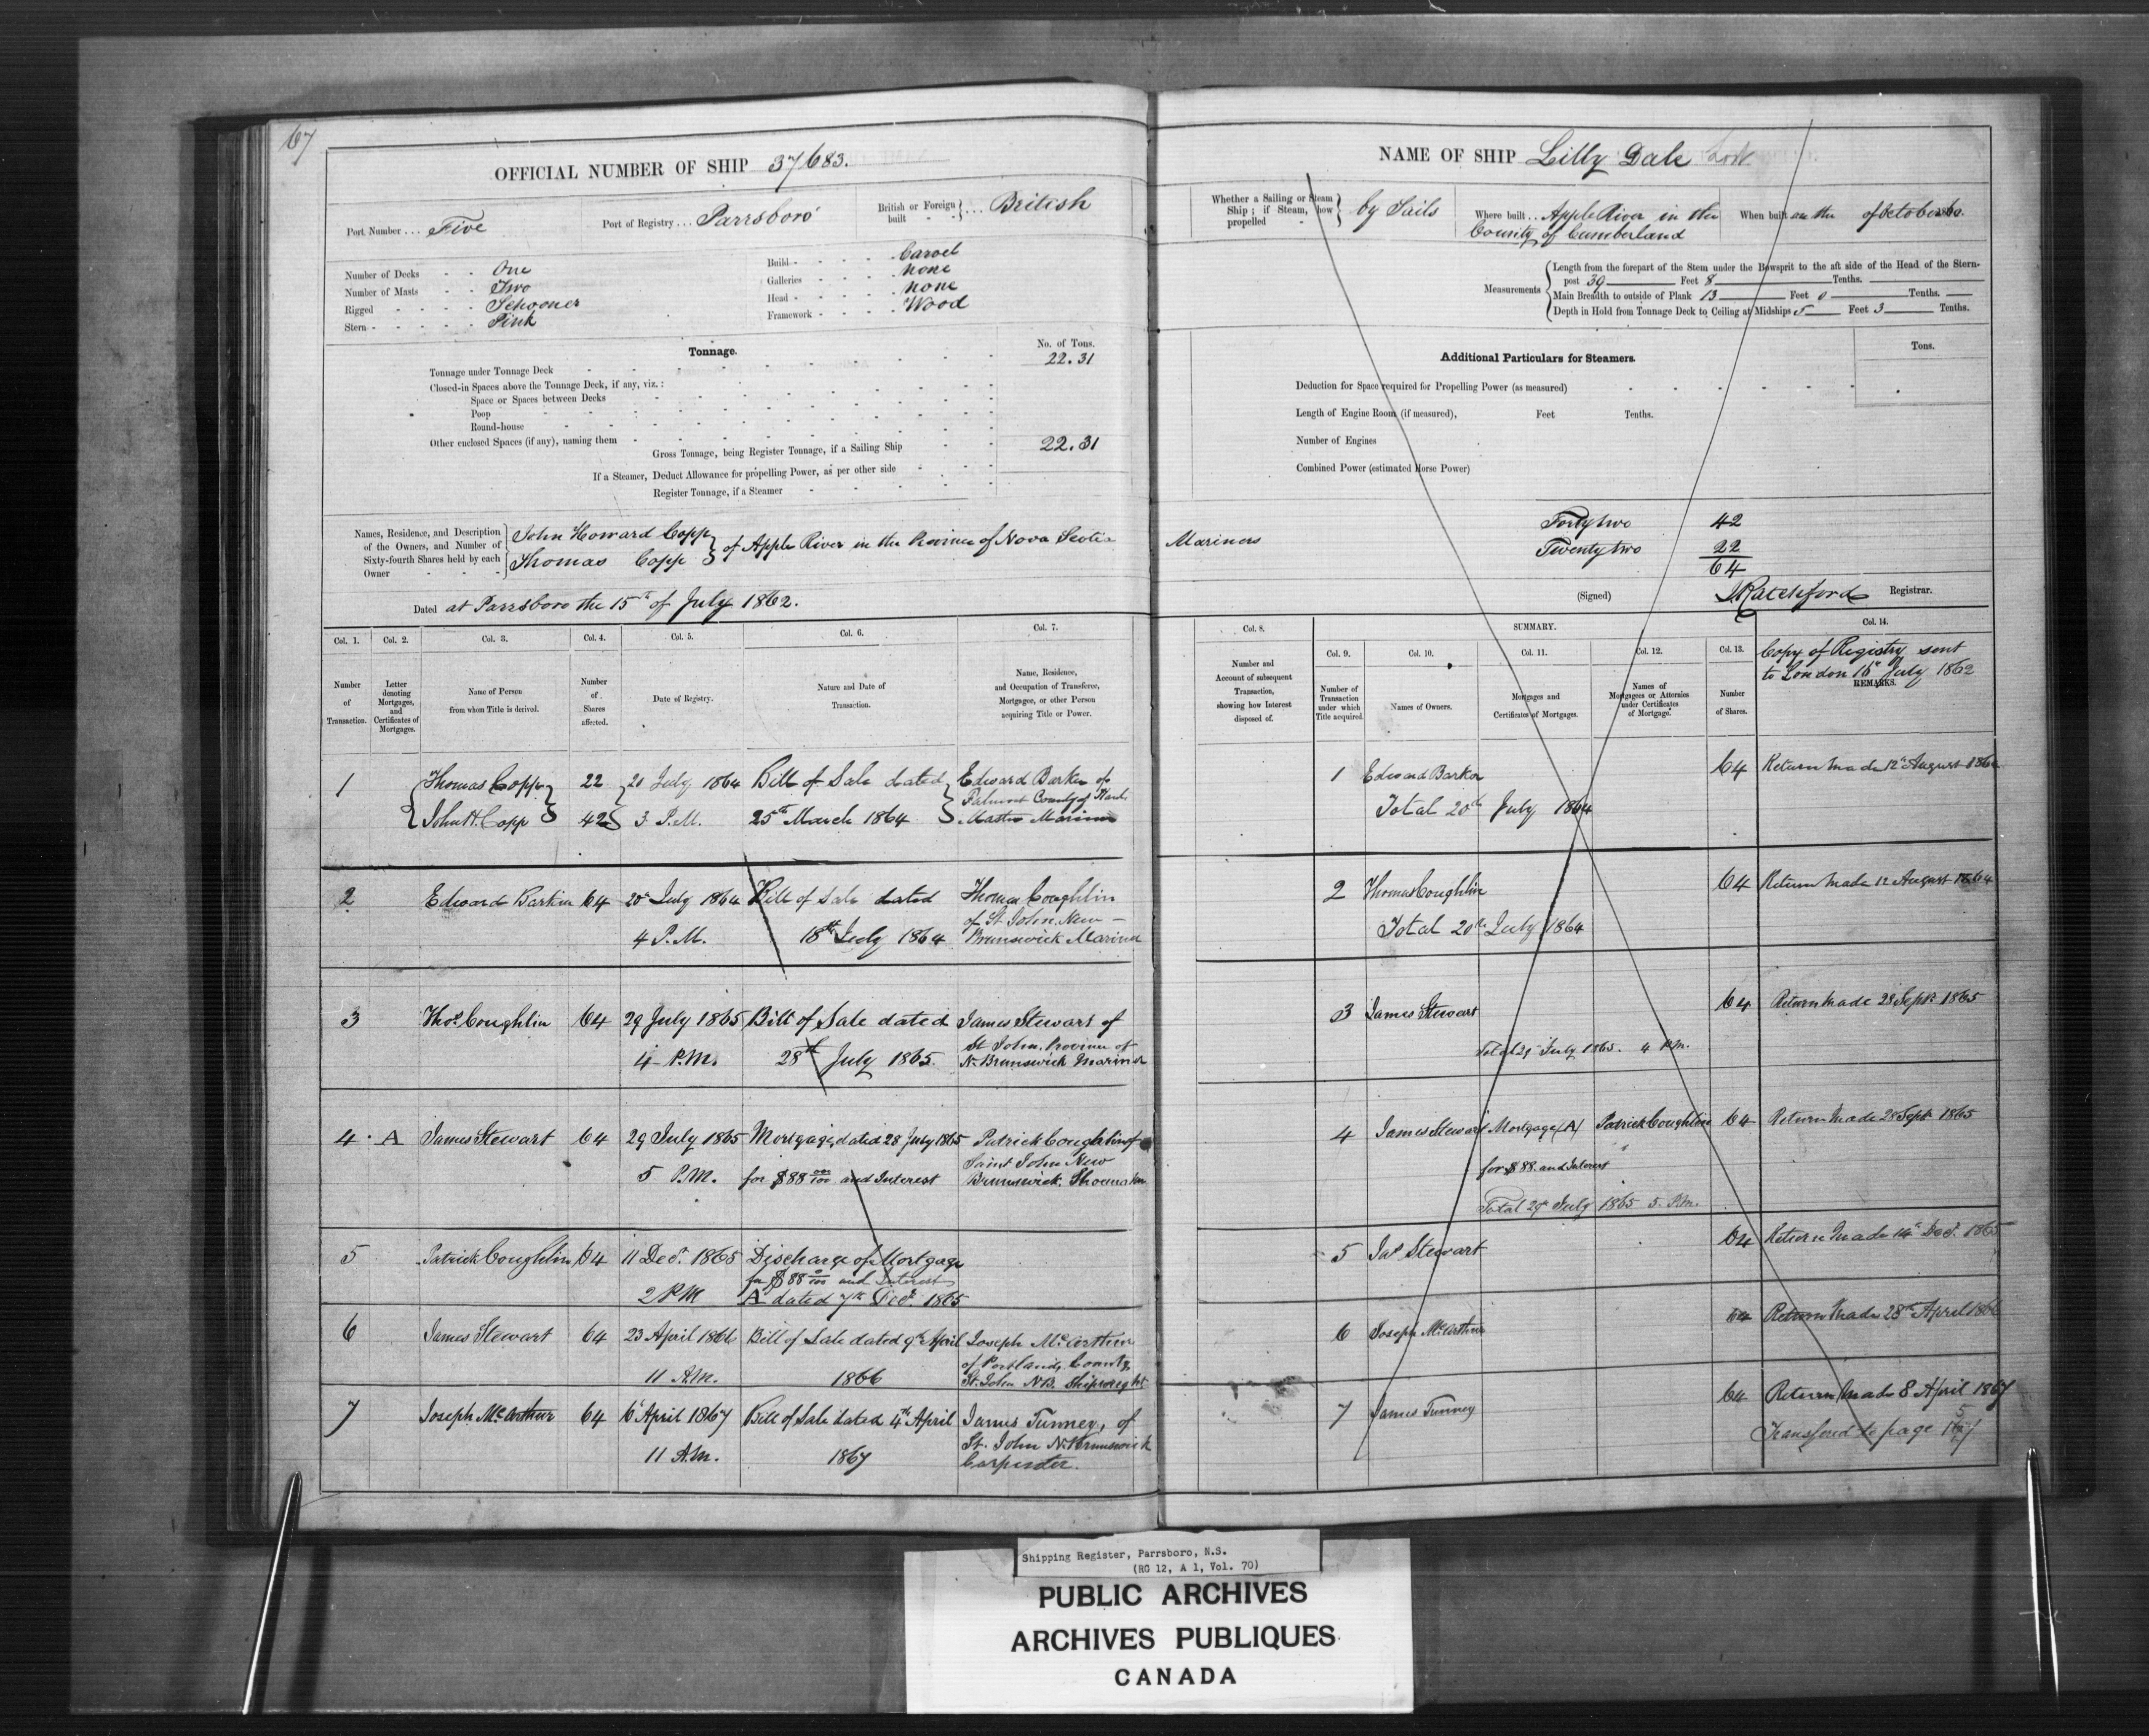 67
OFFICIAL NUMBER OF SHIP 37683.
Port Number ... Five
Port of Registry ... Parrsboro
British or Foreign built ... British
Number of Decks One
Number of Masts Two
Rigged Schooner
Stern Pink
Build Carvel
Galleries none
Head none
Framework Wood
Tonnage.
No. of Tons.
Tonnage under Tonnage Deck 22.31
Closed-in Spaces above the Tonnage Deck, if any, viz.:
Space or Spaces between Decks
Poop
Round-house
Other enclosed Spaces (if any), naming them
Gross Tonnage, being Register Tonnage, if a Sailing Ship 22.31
If a Steamer, Deduct Allowance for propelling Power, as per other side
Register Tonnage, if a Steamer
NAME OF SHIP Lilly Dale Lost
Whether a Sailing or Steam Ship; if Steam, how propelled by Sails
Where built .. Apple River in the
County of Cumberland
When built on the of October
Measurements
Length from the forepart of the Stem under the Bowsprit to the aft side of the Head of the Stern-
post 39 Feet 8 Tenths.
Main Breadth to outside of Plank 13 Feet 0 Tenths.
Depth in Hold from Tonnage Deck to Ceiling at Midships 5 Feet 3 Tenths.
Additional Particulars for Steamers.
Tons.
Deduction for Space required for Propelling Power (as measured)
Length of Engine Room (if measured), Feet Tenths.
Number of Engines
Combined Power (estimated Horse Power)
Names, Residence, and Description
of the Owners, and Number of
Sixty-fourth Shares held by each
Owner
John Howard Copp
Thomas Copp
of Apple River in the Province of Nova Scotia Mariners
Forty two 42
Twenty two 22
64
Dated at Parrsboro the 15th of July 1862.
(Signed) J Ratchford Registrar.
Col. 1. Col. 2. Col. 3. Col. 4. Col. 5. Col. 6. Col. 7.
Number of Transaction.
Letter denoting Mortgages, and Certificates of Mortgages.
Name of Person from whom Title is derived.
Number of Shares affected.
Date of Registry.
Nature and Date of Transaction.
Name, Residence, and Occupation of Transferee, Mortgagee, or other Person acquiring Title or Power.
Col. 8. SUMMARY. Col. 14.
Col. 9. Col. 10. Col. 11. Col. 12. Col. 13.
Number and Account of subsequent Transaction, showing how Interest disposed of.
Number of Transaction under which Title acquired.
Names of Owners.
Mortgages and Certificates of Mortgages.
Names of Mortgagees or Attornies under Certificates of Mortgage.
Number of Shares.
Copy of Registry sent
to London July 1862
REMARKS.
1 Thomas Copp 22 20 July 1864 Bill of Sale dated Edward Barker of
John H. Copp 42 3 P.M. 25th March 1864 Falmouth County of Hants
Master Mariner
1 Edward Barker 64 Return made 12th August 1864
Total 20th July 1864
2 Edward Barker 64 20 July 1864 Bill of Sale dated Thomas Coughlin
of St John, New
4 P.M. 18th July 1864 Brunswick Mariner
2 Thomas Coughlin 64 Return made 12 August 1864
Total 20th July 1864
3 Thos Coughlin 64 29 July 1865 Bill of Sale dated James Stewart of
St John. Province of
4 P.M. 28th July 1865. N. Brunswick Mariner
3 James Stewart 64 Return made 28 Sept 1865
Total 29 July 1865. 4 P.M.
4 A James Stewart 64 29 July 1865 Mortgage, dated 28 July 1865 Patrick Coughlin of
Saint John New
5 P.M. for $88 00/100 and Interest Brunswick.
4 James Stewart Mortgage (A) Patrick Coughlin 64 Return made 28 Sept 1865
for $88. and Interest
Total 29 July 1865 5. P.M.
5 Patrick Coughlin 64 11 Decr. 1865 Discharge of Mortgage
for $88 and Interest
2 P.M A dated 7th Decr. 1865
5 Jas Stewart 64 Return made 14th Decr. 1865
6 James Stewart 64 23 April 1866 Bill of Sale dated 9th April Joseph McArthur
of Portland, County
11 A.M. 1866 St. John N.B. Shipwright
6 Joseph McArthur 64 Return made 28th April 1866
7 Joseph McArthur 64 6 April 1867 Bill of Sale dated 4th April James Tunney, of
St. John N. Brunswick
11 A.M. 1867 Carpenter.
7 James Tunney 64 Return made 8 April 1867
Transfered to page
Shipping Register, Parrsboro, N.S.
(RG 12, A 1, Vol. 70)
PUBLIC ARCHIVES
ARCHIVES PUBLIQUES
CANADA